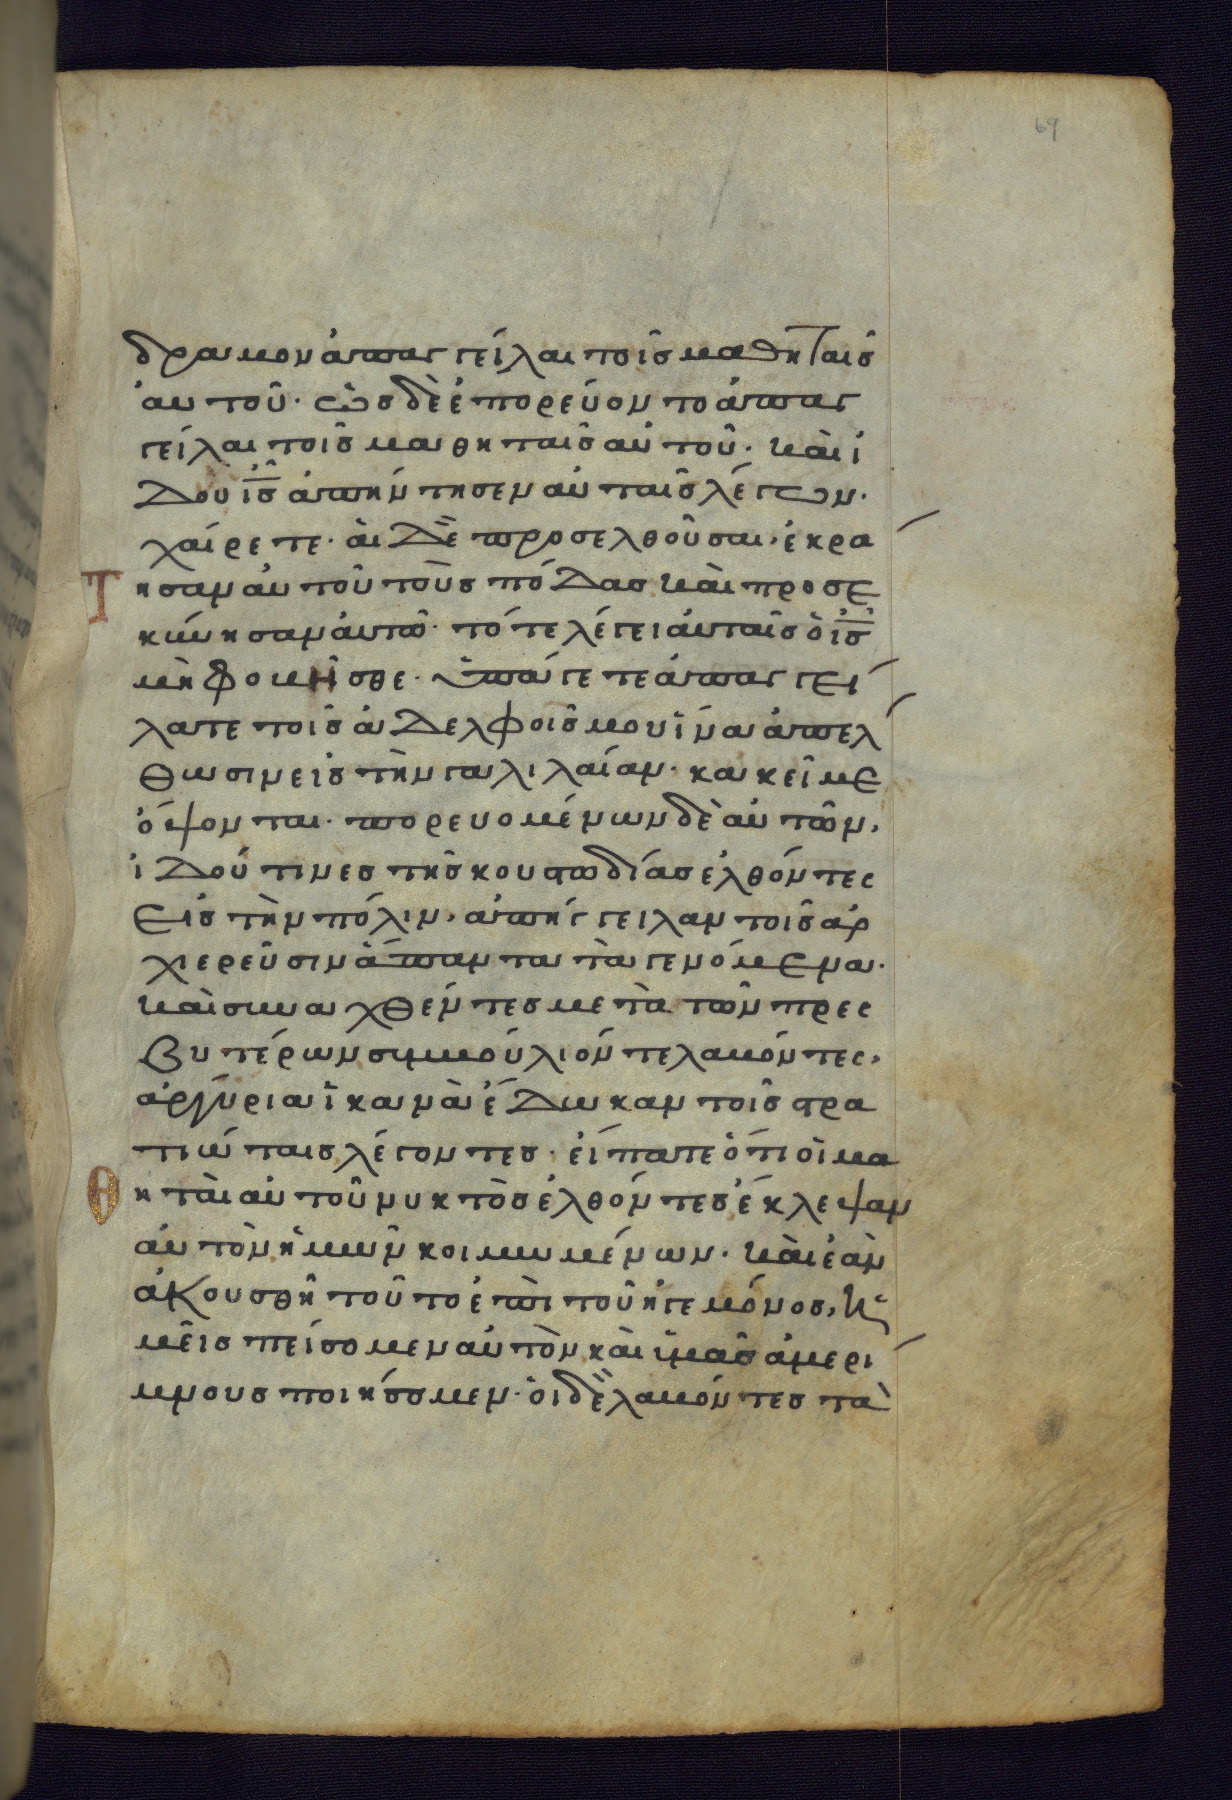 69
δραμον ἀπαγγεῖλαι τοῖς μαθηταῖς
ἀυτοῦ· ὡς δὲ ἐπορεύοντο ἀπαγ
γεῖλαι τοῖς μαθηταῖς αὐτοῦ· καὶ ἰ
δου ις ἀπήντησεν αὐταῖς λέγων·
χαίρετε· ἁι δὲ προσελθοῦσαι, ἐκρα
Τησαν αὐτοῦ τοὺς πόδας καὶ προσε
κύνησαν ἀυτῶ· τότε λέγει ἀυταῖς ὁ ις
μὴ φοβῆσθε· ὑπάγετε ἀπαγγεί
λατε τοῖς ἀδελφοῖς μου ἵνα ἀπελ
θωσιν εἰς τὴν γαλιλαίαν· κακεῖ με
ὄψονται· πορευομένων δὲ αὐτῶν,
ἰδού τινες τῆς κουστωδίας ἐλθόντες
εἰς τὴν πόλιν, ἀπήγγειλαν τοῖς ἀρ
χιερεῦσιν ἅπαντα τὰ γενόμενα·
καὶ συναχθέντες μετὰ τῶν πρεσ
βυτέρων συμβούλιόν τε λαβόντες,
ἀργύρια ἱκανὰ ἔδωκαν τοῖς στρα
τιώταις λέγοντες· εἴπατε ὅτι ὁι μα
Θηταὶ αὐτοῦ νυκτὸς ἐλθόντες ἔκλεψαν
αὐτὸν ἡμῶν κοιμωμένων· καὶ ἐὰν
ἀκουσθῆ τοῦτο ἐπὶ τοῦ ἡγεμόνος, ἡ
μεῖς πείσομεν αὐτὸν καὶ ὑμᾶς ἀμερί
μνους ποιήσομεν· ὁι δὲ λαβόντες τὰ